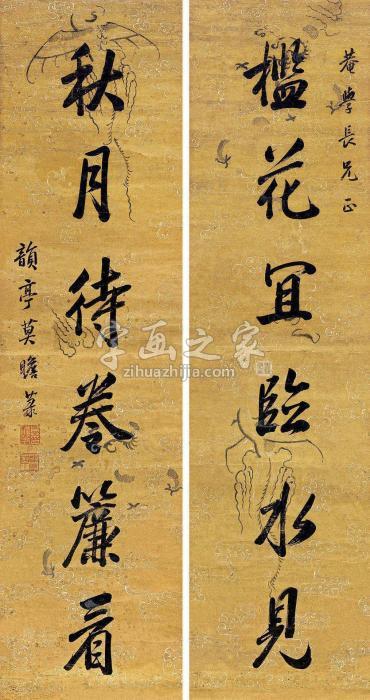 菴學長兄正
檻花宜臨水見
秋月待卷簾看
韻亭莫瞻菉
字画之家
zihuazhijia.com